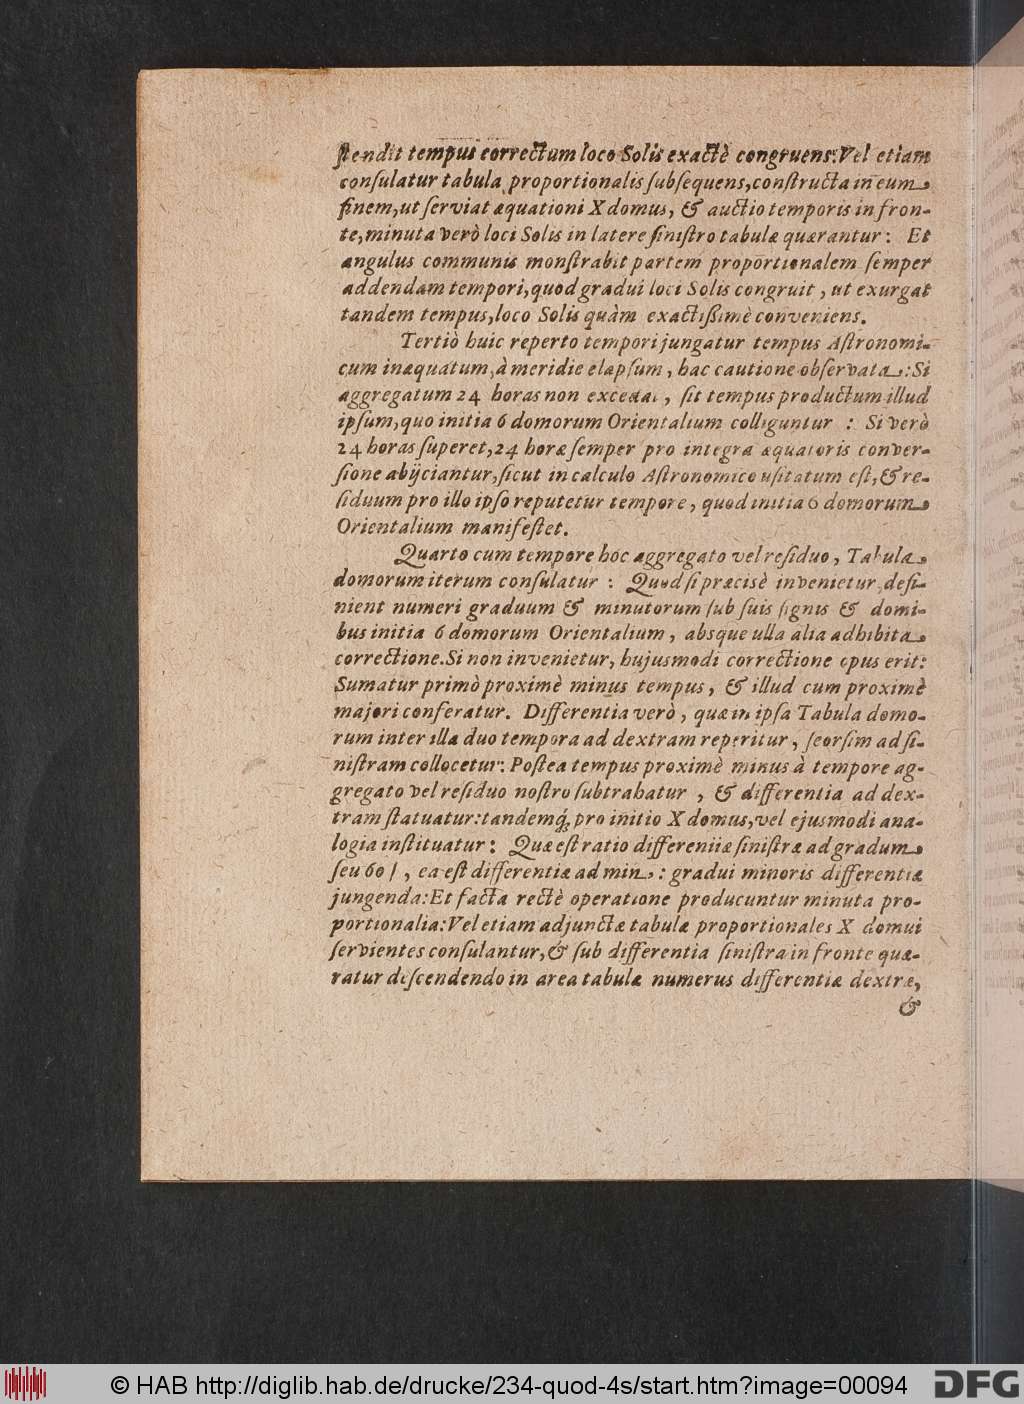 ſtendit tempus correctum loco Solis exactè congruens: Vel etiam
conſulatur tabula proportionalis ſubſequens, conſtructa in eum
finem, ut ſerviat æquationi X domus, & auctio temporis in fron-
te, minuta verò loci Solis in latere ſiniſtro tabulæ quærantur: Et
angulus communis monſtrabit partem proportionalem ſemper
addendam tempori, quod gradui loci Solis congruit, ut exurgat
tandem tempus, loco Solis quàm exactißimè conveniens.
Tertiò huic reperto tempori jungatur tempus Aſtronomi-
cum inæquatum, à meridie elapſum, hac cautione obſervata: Si
aggregatum 24 horas non excedat, ſit tempus productum illud
ipſum, quo initia 6 domorum Orientalium colliguntur: Si verò
24 horas ſuperet, 24 horæ ſemper pro integra æquatoris conver-
ſione abijciantur, ſicut in calculo Aſtronomico uſitatum eſt, & re-
ſiduum pro illo ipſo reputetur tempore, quod initia 6 domorum
Orientalium manifeſtet.
Quarto cum tempore hoc aggregato vel reſiduo, Tabula
domorum iterum conſulatur: Quod ſi præcisè invenietur, deſi-
nient numeri graduum & minutorum ſub ſuis ſignis & domi-
bus initia 6 domorum Orientalium, absque ulla alia adhibita
correctione. Si non invenietur, hujusmodi correctione opus erit:
Sumatur primò proximè minus tempus, & illud cum proximè
majori conferatur. Differentia verò, quæ in ipſa Tabula domo-
rum inter illa duo tempora ad dextram reperitur, ſeorſim ad ſi-
niſtram collocetur: Poſtea tempus proximè minus à tempore ag-
gregato vel reſiduo noſtro ſubtrahatur, & differentia ad dex-
tram ſtatuatur: tandemq́; pro initio X domus, vel ejusmodi ana-
logia inſtituatur: Quæ eſt ratio differentiæ ſiniſtræ ad gradum
ſeu 60 /, ea eſt differentiæ ad min: gradui minoris differentiæ
jungenda: Et facta rectè operatione producuntur minuta pro-
portionalia: Vel etiam adjunctæ tabulæ proportionales X domui
ſervientes conſulantur, & ſub differentia ſiniſtra in fronte quæ-
ratur deſcendendo in area tabulæ numerus differentiæ dextræ,
&
© HAB http://diglib.hab.de/drucke/234-quod-4s/start.htm?image=00094
DFG